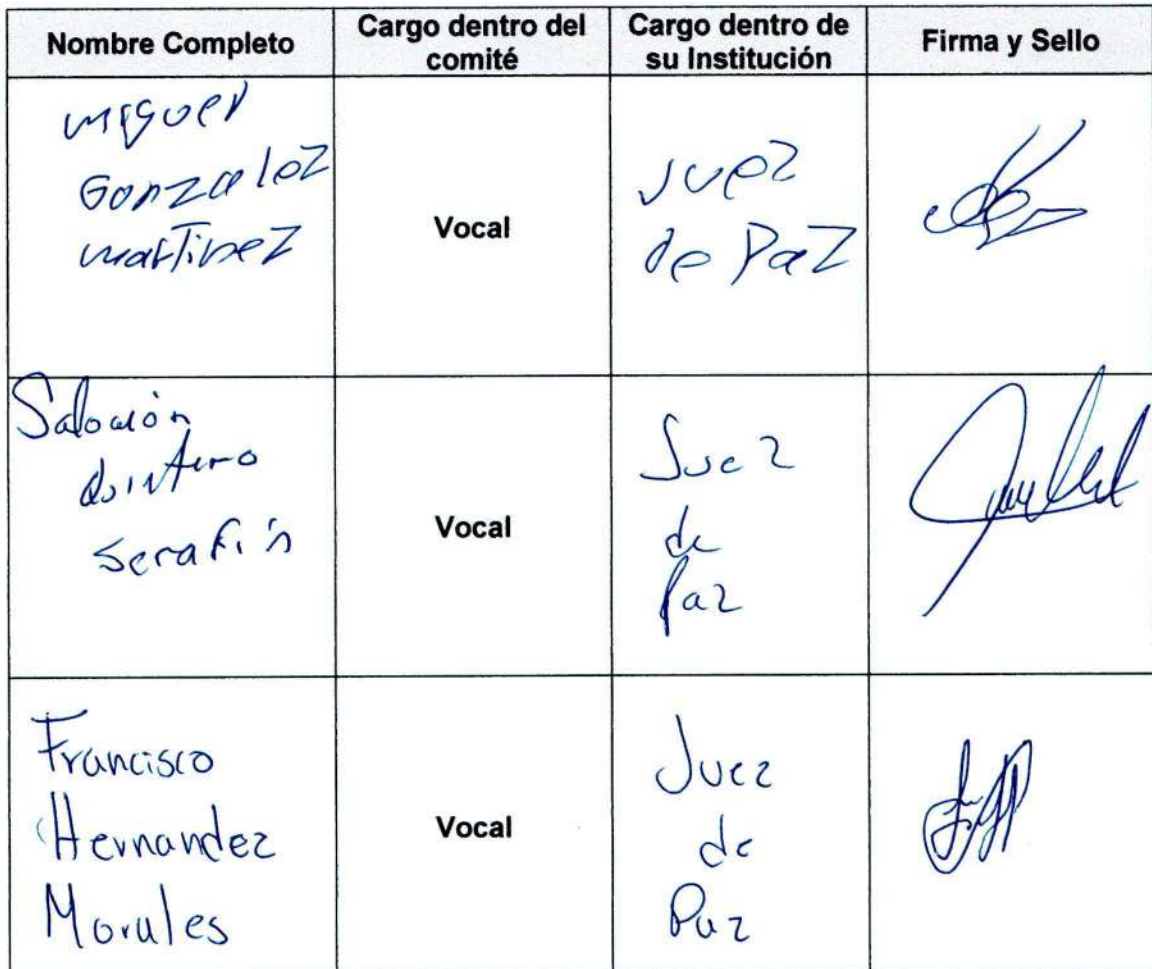 Nombre Completo
Cargo dentro del
comité
Cargo dentro de
su Institución
Firma y Sello
Miguel
Gonzalez
Martinez
Vocal
Juez
de Paz
Salomón
Quintero
Serafín
Vocal
Juez
de
Paz
Francisco
Hernandez
Morales
Vocal
Juez
de
Paz